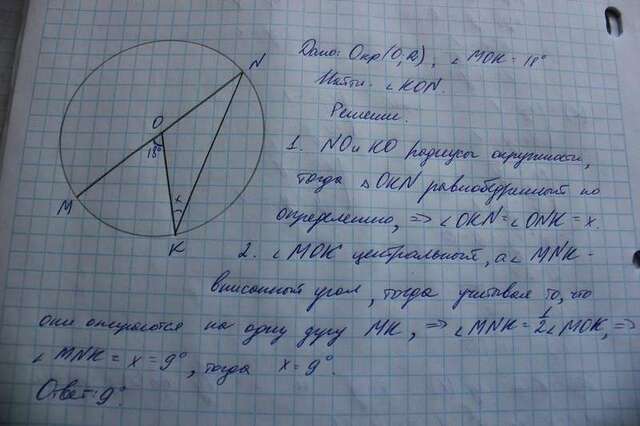 Дано: Окр(O;R), ∠MOK = 18°
Найти: ∠KON.
Решение.
N
O
18°
x
M
K
1. NO и KO радиусы окружности,
тогда △OKN равнобедренный по
определению, => ∠OKN = ∠ONK = x.
2. ∠MOK центральный, а ∠MNK -
вписанный угол, тогда учитывая то, что
они опираются на одну дугу MK, => ∠MNK = 1/2 ∠MOK, =>
∠MNK = x = 9°, тогда x = 9°.
Ответ: 9°.